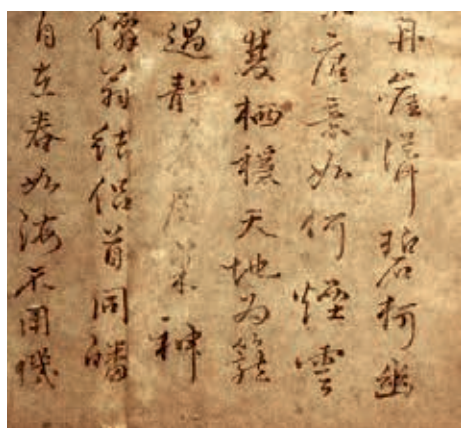 丹崖碧柯幽
居意如何煙雲
雙栖穩天地為籠
過神
翁結侶首同皤
自在春如海不用機